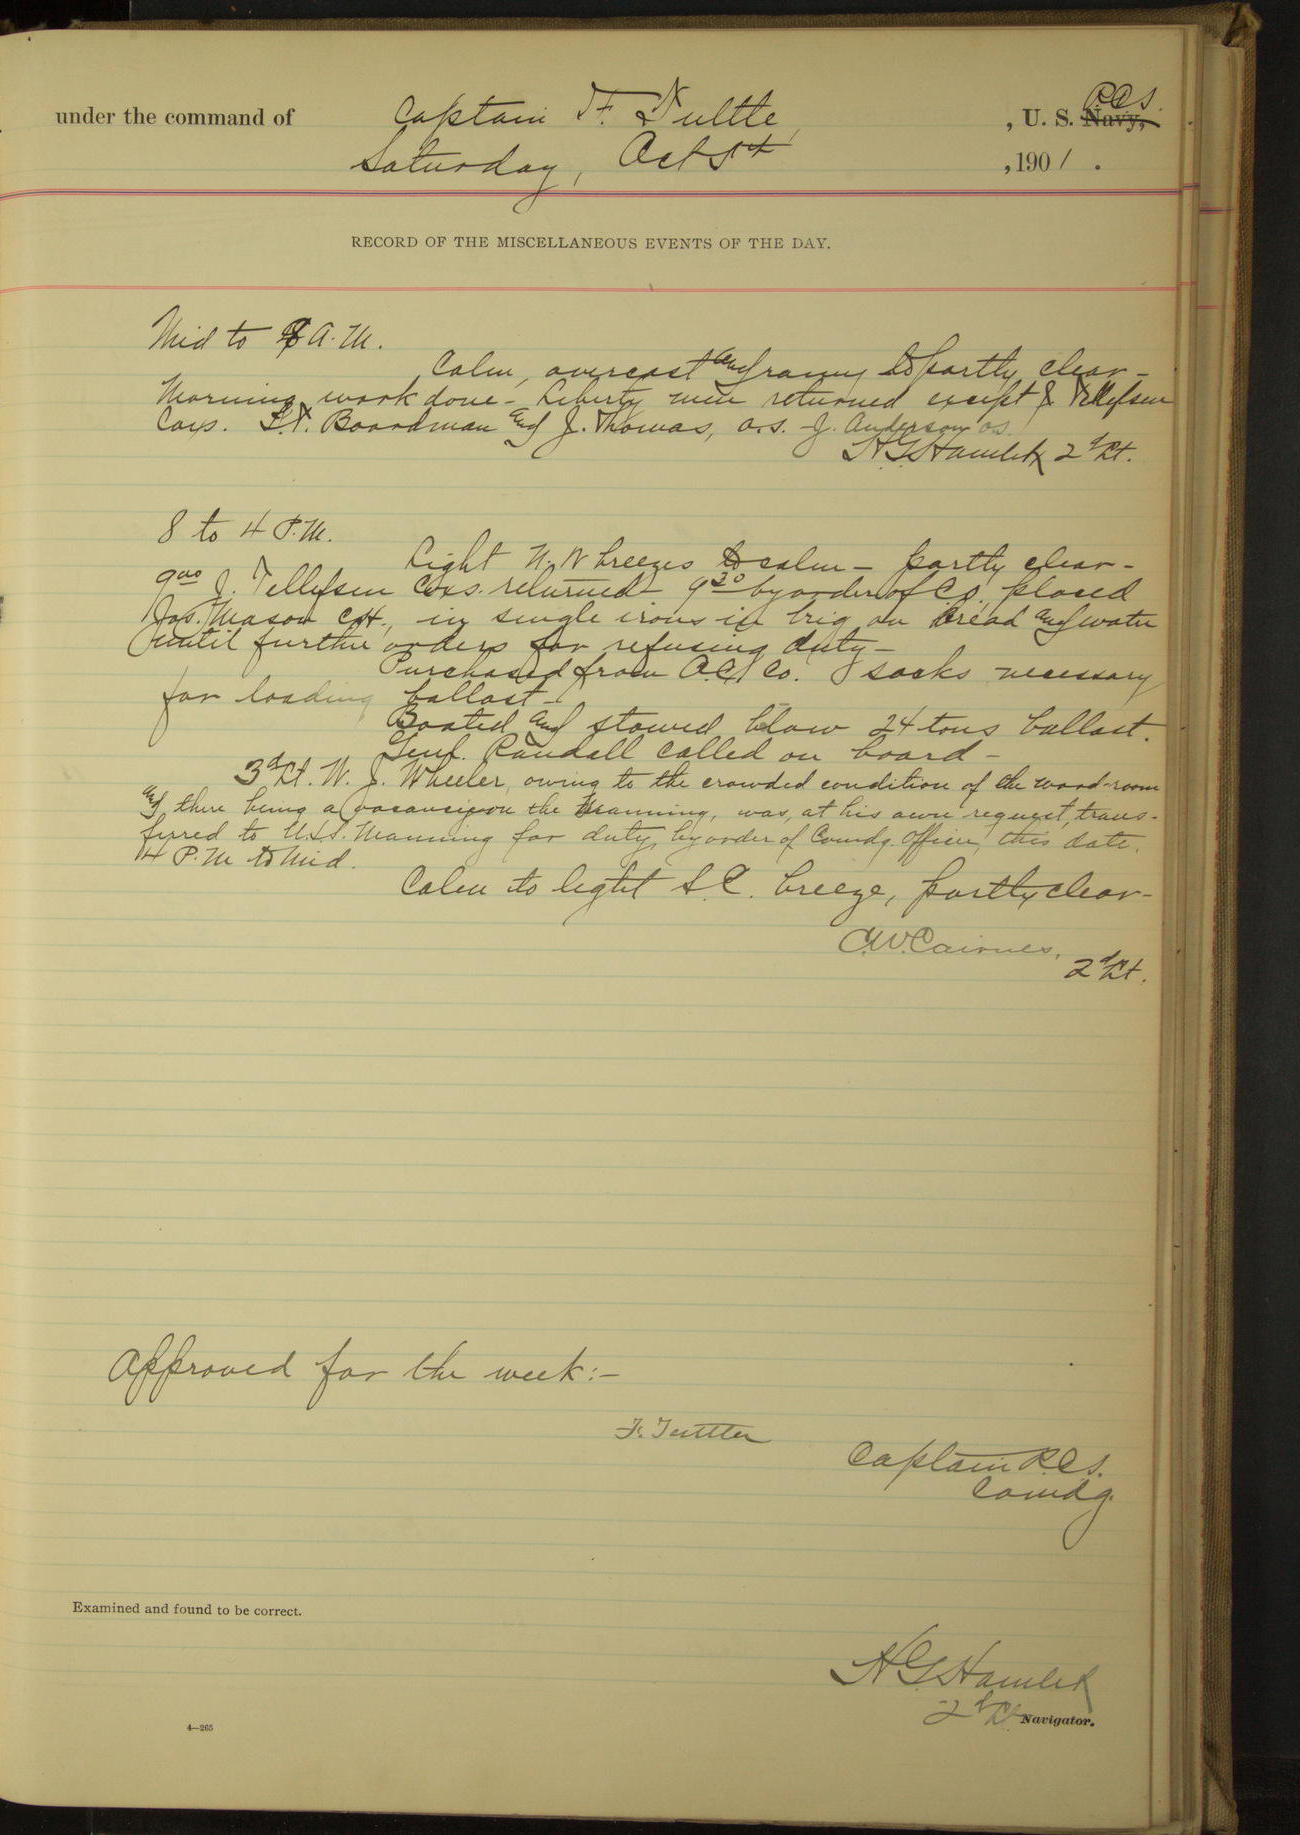 under the command of Captain F. Tuttle, , U. S. Navy, R.C.S.
Saturday, Oct 5th , 1901 .
RECORD OF THE MISCELLANEOUS EVENTS OF THE DAY.
Mid to 8 A.M.
Calm, overcast and rainy to partly clear -
Morning work done - Liberty men returned except J. Tellefsen
Coxs. F.T. Boardman and J. Thomas, o.s. - J. Anderson os.
H G Hamlet 2d Lt.
8 to 4 P.M.
Light N.W breezes to calm - partly clear -
9.00 J. Tellefsen Coxs. returned - 9 30 by order of C.O. placed
Jas. Mason in single irons in brig on bread and water
until further orders for refusing duty -
Purchased from A.C. Co. sacks necessary
for loading ballast -
Boated and stowed below 24 tons ballast.
Genl. Randall called on board -
3d Lt. W. J. Wheeler, owing to the crowded condition of the ward-room
and there being a vacancy on the Manning, was, at his own request, trans-
ferred to U.S.S. Manning for duty, by order of Comdg. Officer, this date.
4 P.M to Mid.
Calm to light S.E. breeze, partly clear -
C.W. Cairnes,
2d Lt.
Approved for the week:-
F. Tuttle
Captain R.C.S.
Comdg.
Examined and found to be correct.
H G Hamlet
2d Lt. Navigator.
4—265